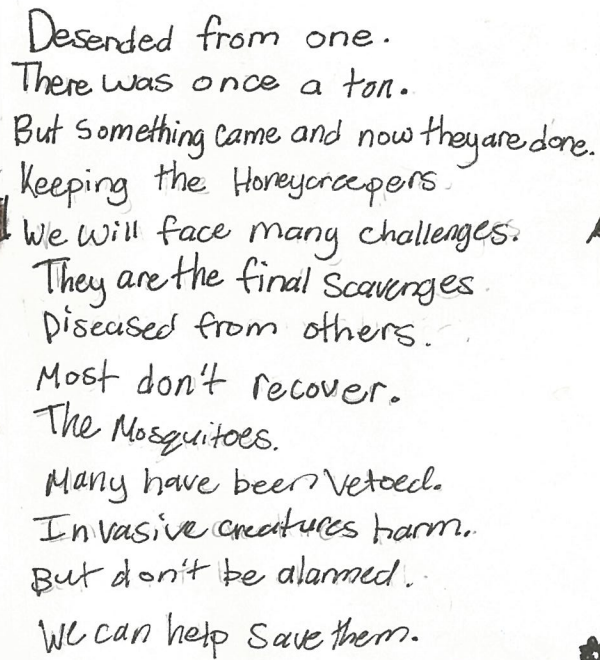 Desended from one.
There was once a ton.
But something came and now they are done.
Keeping the Honeycreepers
We will face many challenges.
They are the final Scavenges
Diseased from others.
Most don't recover.
The Mosquitoes.
Many have been Vetoed.
Invasive creatures harm.
But don't be alarmed.
We can help Save them.